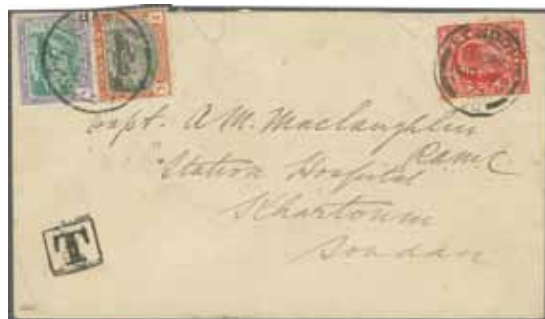 LONDON
Capt. A M. Maclaughlin
R.A.M.C
Station Hospital
Khartoum
Soudan
T